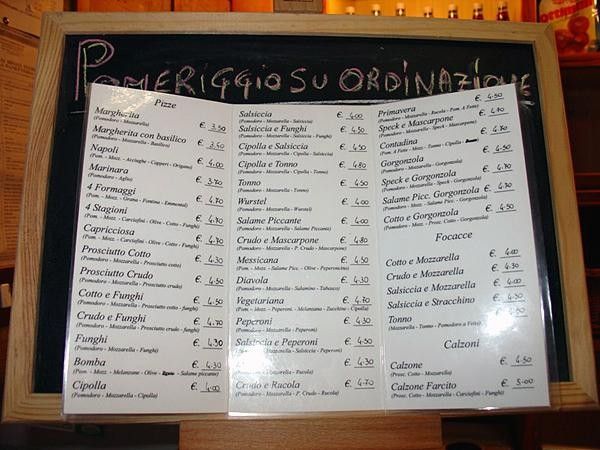 POMERIGGIO SU ORDINAZIONE
Pizze
Margherita € 3.50
(Pomodoro - Mozzarella)
Margherita con basilico € 3.60
(Pomodoro - Mozzarella - Basilico)
Napoli € 4.00
(Pom. - Mozz. - Acciughe - Capperi - Origano)
Marinara € 3.70
(Pomodoro - Aglio)
4 Formaggi € 4.70
(Pom. - Mozz. - Grana - Fontina - Emmental)
4 Stagioni € 4.70
(Pom. - Mozz. - Carciofini - Olive - Cotto - Funghi)
Capricciosa € 4.70
(Pom. - Mozz. - Carciofini - Olive - Cotto - Funghi)
Prosciutto Cotto € 4.30
(Pomodoro - Mozzarella - Prosciutto cotto)
Prosciutto Crudo € 4.50
(Pomodoro - Mozzarella - Prosciutto crudo)
Cotto e Funghi € 4.50
(Pomodoro - Mozzarella - Prosciutto cotto - Funghi)
Crudo e Funghi € 4.70
(Pomodoro - Mozzarella - Prosciutto crudo - Funghi)
Funghi € 4.30
(Pomodoro - Mozzarella - Funghi)
Bomba € 4.30
(Pom. - Mozz. - Melanzane - Olive - - Salame piccante)
Cipolla € 4.00
(Pomodoro - Mozzarella - Cipolla)
Salsiccia € 4.00
(Pomodoro - Mozzarella - Salsiccia)
Salsiccia e Funghi € 4.50
(Pomodoro - Mozzarella - Salsiccia - Funghi)
Cipolla e Salsiccia € 4.50
(Pomodoro - Mozzarella - Cipolla - Salsiccia)
Cipolla e Tonno € 4.80
(Pomodoro - Mozzarella - Cipolla - Tonno)
Tonno € 4.50
(Pomodoro - Mozzarella - Tonno)
Wurstel € 4.00
(Pomodoro - Mozzarella - Wurstel)
Salame Piccante € 4.00
(Pomodoro - Mozzarella - Salame Piccante)
Crudo e Mascarpone € 4.80
(Pomodoro - Mozzarella - P. Crudo - Mascarpone)
Messicana € 4.50
(Pom. - Mozz. - Salame Picc. - Olive - Peperoncino)
Diavola € 4.30
(Pomodoro - Mozzarella - Salamino - Tabasco)
Vegetariana € 4.70
(Pom. - Mozz. - Peperoni - Melanzane - Zucchine - Cipolla)
Peperoni € 4.30
(Pomodoro - Mozzarella - Peperoni)
Salsiccia e Peperoni € 4.50
(Pomodoro - Mozzarella - Salsiccia - Peperoni)
€ 4.30
(Pomodoro - Mozzarella - Rucola)
Crudo e Rucola € 4.70
(Pomodoro - Mozzarella - P. Crudo - Rucola)
Primavera € 4.50
(Pomodoro - Mozzarella - Rucola - Pom. A Fette)
Speck e Mascarpone € 4.70
(Pomodoro - Mozzarella - Speck - Mascarpone)
Contadina € 4.70
(Pom. A Fette - Mozz. - Tonno - Cipolla - )
Gorgonzola € 4.50
(Pomodoro - Mozzarella - Gorgonzola)
Speck e Gorgonzola € 4.70
(Pomodoro - Mozzarella - Speck - Gorgonzola)
Salame Picc. Gorgonzola € 4.70
(Pomodoro - Mozz. - Salame Picc. - Gorgonzola)
Cotto e Gorgonzola € 4.50
(Pomodoro - Mozz. - Prosc. Cotto - Gorgonzola)
Focacce
Cotto e Mozzarella € 4.00
Crudo e Mozzarella € 4.30
Salsiccia e Mozzarella € 4.00
Salsiccia e Stracchino € 4.30
Tonno € 4.50
(Mozzarella - Tonno - Pomodoro a Fette)
Calzoni
Calzone € 4.50
(Prosc. Cotto - Mozzarella)
Calzone Farcito € 5.00
(Prosc. Cotto - Mozzarella - Carciofini - Funghi)